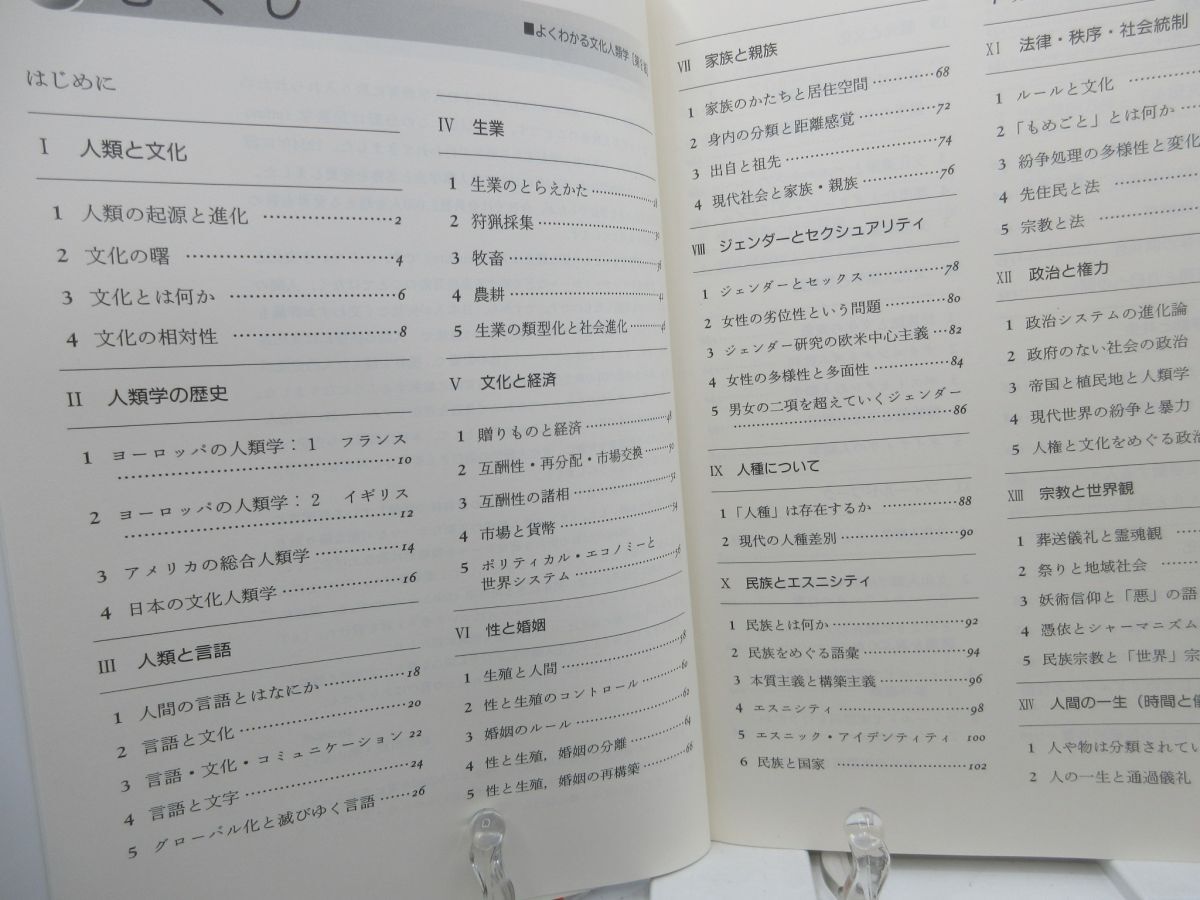 もくじ
■よくわかる文化人類学［第2版］
はじめに
I 人類と文化
1 人類の起源と進化 …………… 2
2 文化の曙 …………………… 4
3 文化とは何か ……………… 6
4 文化の相対性 ……………… 8
II 人類学の歴史
1 ヨーロッパの人類学：1 フランス
…………………………… 10
2 ヨーロッパの人類学：2 イギリス
…………………………… 12
3 アメリカの総合人類学 ……… 14
4 日本の文化人類学 ………… 16
III 人類と言語
1 人間の言語とはなにか ……… 18
2 言語と文化 ………………… 20
3 言語・文化・コミュニケーション 22
4 言語と文字 ………………… 24
5 グローバル化と滅びゆく言語 …… 26
IV 生業
1 生業のとらえかた ………… 28
2 狩猟採集 ………………… 30
3 牧畜 ……………………… 36
4 農耕 ……………………… 42
5 生業の類型化と社会進化 …… 46
V 文化と経済
1 贈りものと経済 …………… 48
2 互酬性・再分配・市場交換 …… 50
3 互酬性の諸相 …………… 52
4 市場と貨幣 ……………… 54
5 ポリティカル・エコノミーと
世界システム …………… 56
VI 性と婚姻
1 生殖と人間 ……………… 58
2 性と生殖のコントロール …… 60
3 婚姻のルール …………… 62
4 性と生殖，婚姻の分離 …… 64
5 性と生殖，婚姻の再構築 …… 66
VII 家族と親族
1 家族のかたちと居住空間 ………… 68
2 身内の分類と距離感覚 ………… 72
3 出自と祖先 ………………… 74
4 現代社会と家族・親族 ………… 76
VIII ジェンダーとセクシュアリティ
1 ジェンダーとセックス ………… 78
2 女性の劣位性という問題 ……… 80
3 ジェンダー研究の欧米中心主義 … 82
4 女性の多様性と多面性 ………… 84
5 男女の二項を超えていくジェンダー
…………………………… 86
IX 人種について
1 「人種」は存在するか ………… 88
2 現代の人種差別 …………… 90
X 民族とエスニシティ
1 民族とは何か ……………… 92
2 民族をめぐる語彙 …………… 94
3 本質主義と構築主義 ………… 96
4 エスニシティ ……………… 98
5 エスニック・アイデンティティ 100
6 民族と国家 ……………… 102
XI 法律・秩序・社会統制
1 ルールと文化 …………
2 「もめごと」とは何か ……
3 紛争処理の多様性と変化
4 先住民と法 …………
5 宗教と法
XII 政治と権力
1 政治システムの進化論
2 政府のない社会の政治
3 帝国と植民地と人類学
4 現代世界の紛争と暴力
5 人権と文化をめぐる政治
XIII 宗教と世界観
1 葬送儀礼と霊魂観 ……
2 祭りと地域社会 ………
3 妖術信仰と「悪」の語
4 憑依とシャーマニズム
5 民族宗教と「世界」宗
XIV 人間の一生（時間と儀
1 人や物は分類されてい
2 人の一生と通過儀礼